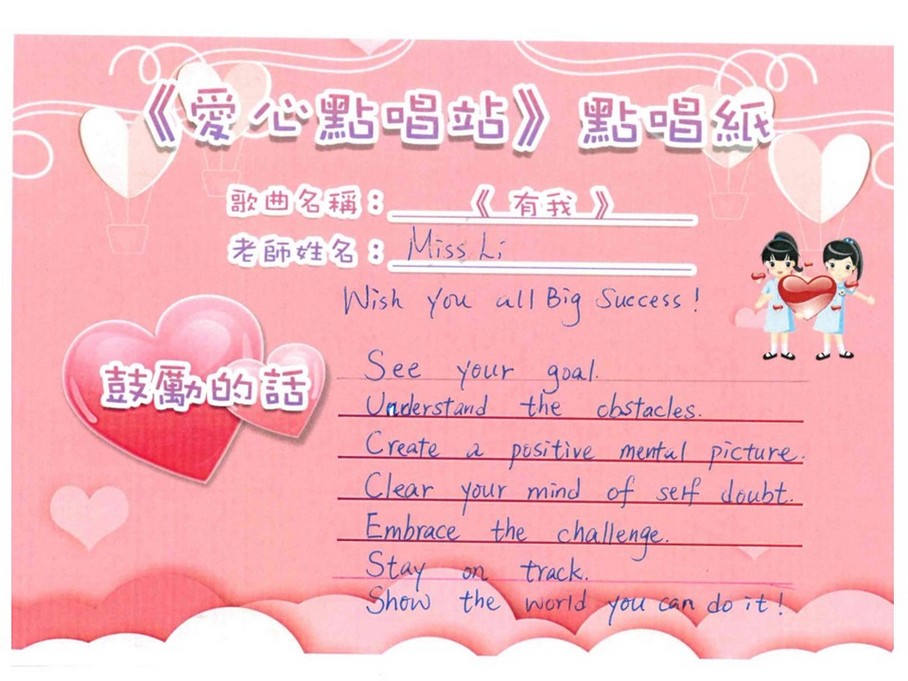 《愛心點唱站》點唱紙
歌曲名稱：《 有我 》
老師姓名： Miss Li
Wish you all Big Success!
鼓勵的話
See your goal.
Understand the obstacles.
Create a positive mental picture.
Clear your mind of self doubt.
Embrace the challenge.
Stay on track.
Show the world you can do it!